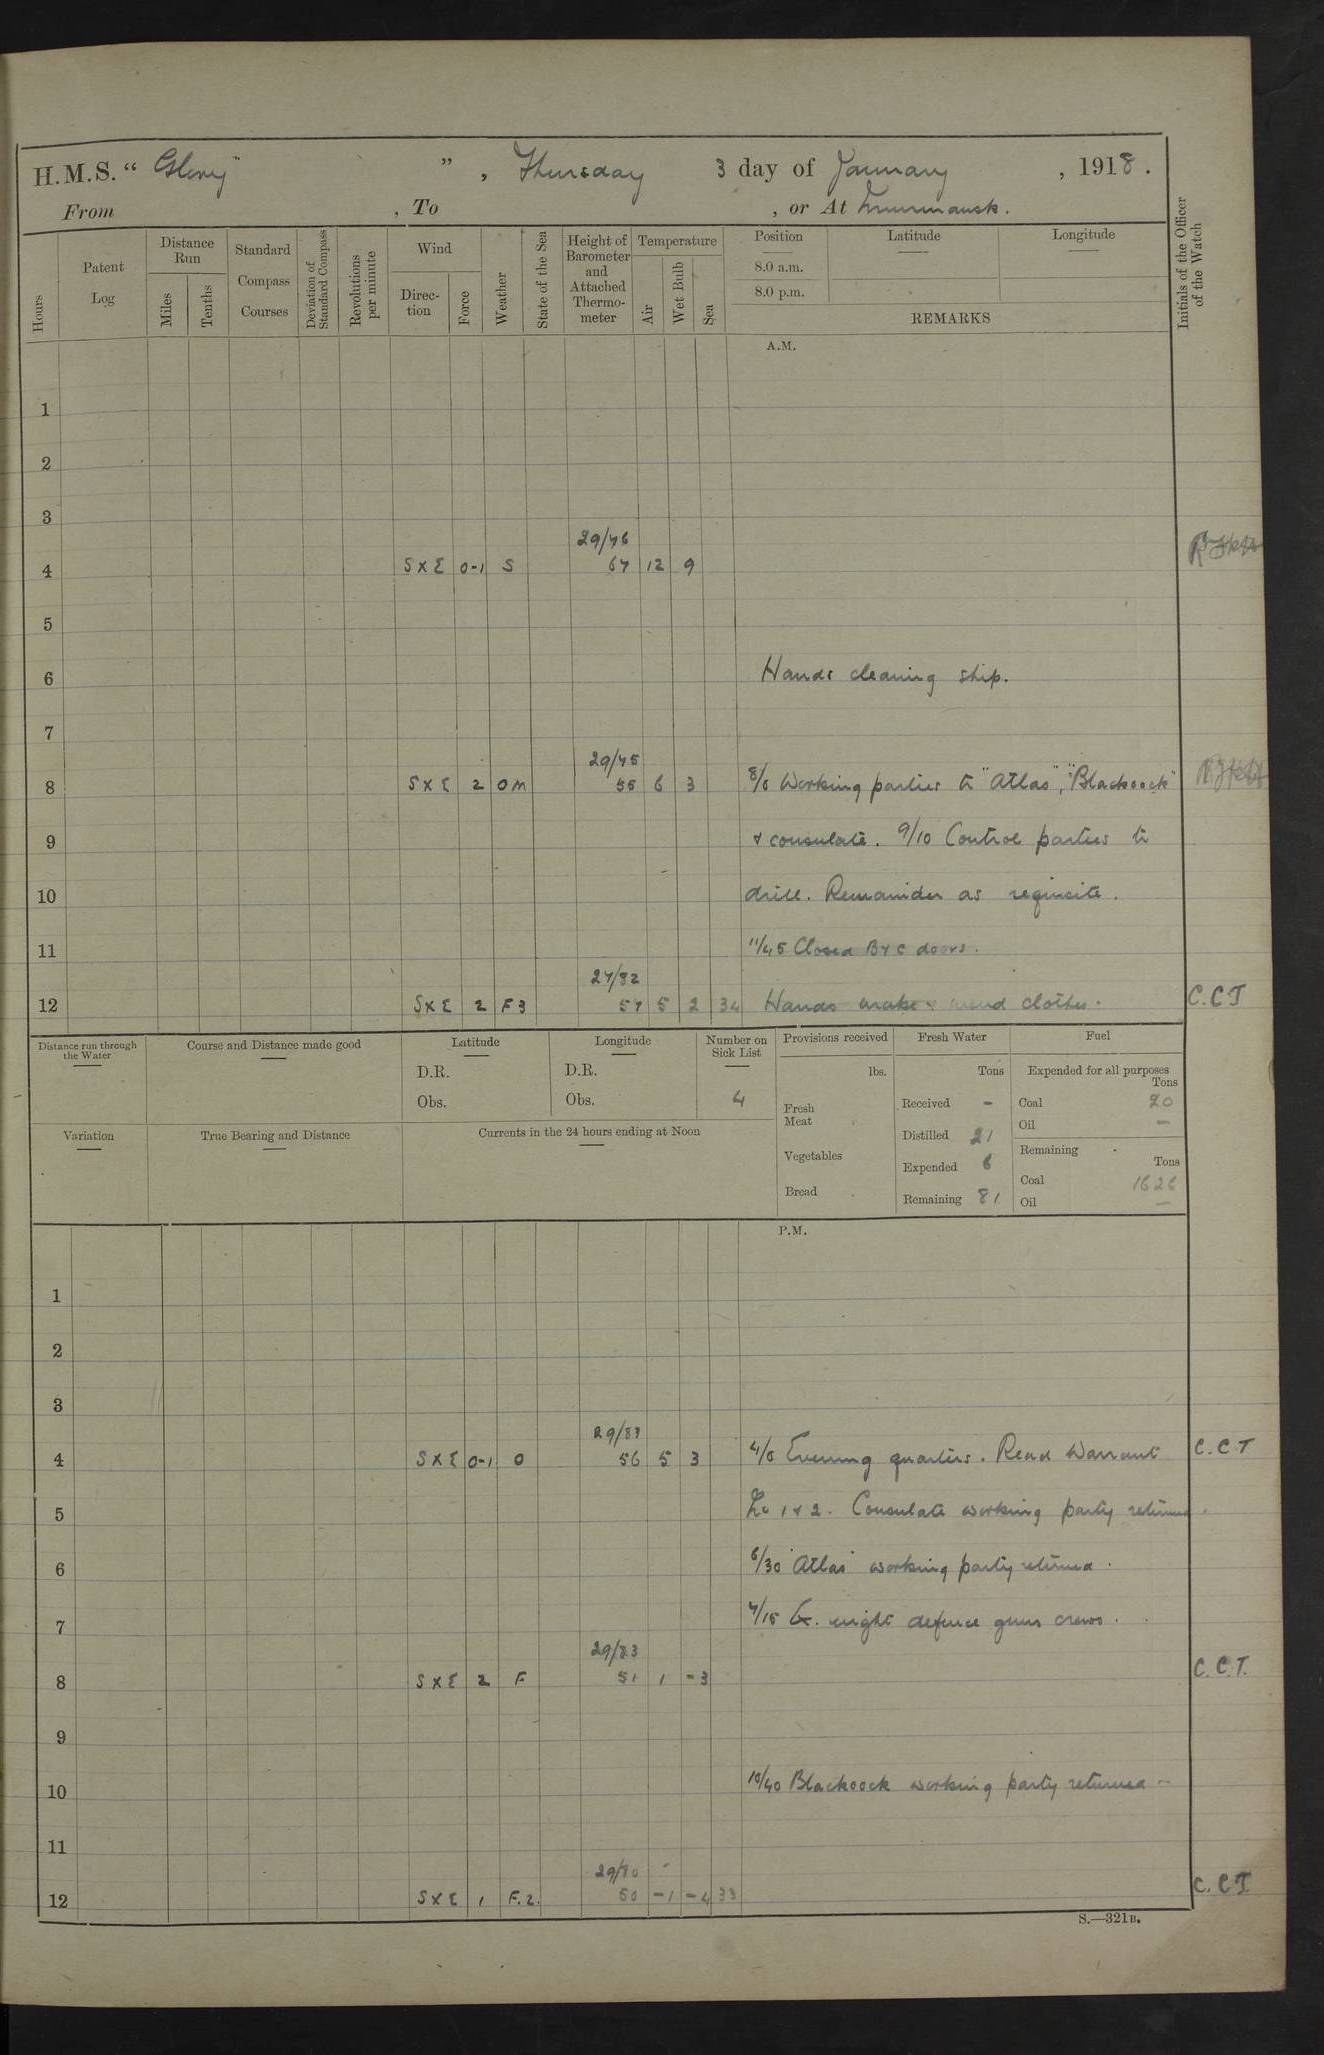 H.M.S. “ Glory ” , Thursday 3 day of January , 1918 .
From , To , or At Murmansk .
Hours
Patent Log
Distance Run
Miles
Tenths
Standard Compass Courses
Deviation of Standard Compass
Revolutions per minute
Wind
Direction
Force
Weather
State of the Sea
Height of Barometer and Attached Thermometer
Temperature
Air
Wet Bulb
Sea
Position
8.0 a.m.
8.0 p.m.
Latitude
Longitude
REMARKS
Initials of the Officer of the Watch
A.M.
1
2
3
29/76
4 S X E 0-1 S 67 12 9
5
6 Hands cleaning ship.
7
29/75
8 S X E 2 O M 55 6 3 8/0 Working parties to "Atlas", "Blackcock"
9 & consulate. 9/10 Control parties to
10 drill. Remainder as requisite.
11 11/45 Closed B & C doors.
/82
12 S X E 2 F 3 57 5 2 34 Hands make & mend clothes. C.C.T
Distance run through the Water
Course and Distance made good
Latitude
D.R.
Obs.
Longitude
D.R.
Obs.
Number on Sick List
4
Variation
True Bearing and Distance
Currents in the 24 hours ending at Noon
Provisions received
lbs.
Fresh Meat
Vegetables
Bread
Fresh Water
Tons
Received -
Distilled 21
Expended 6
Remaining 81
Fuel
Expended for all purposes
Tons
Coal 20
Oil -
Remaining
Tons
Coal 1626
Oil -
P.M.
1
2
3
29/87
4 S X E 0-1 O 56 5 3 4/0 Evening quarters. Read Warrant C.C.T
5 No 1 & 2. Consulate working party returned.
6 6/30 "Atlas" working party returned.
7 7/15 Ex. night defence guns crews.
29/83
8 S X E 2 F 51 1 -3 C.C.T.
9
10 10/40 Blackcock working party returned -
11
29/80
12 S X E 1 F.2. 50 -1 -4 33 C.C.T
S.—321B.